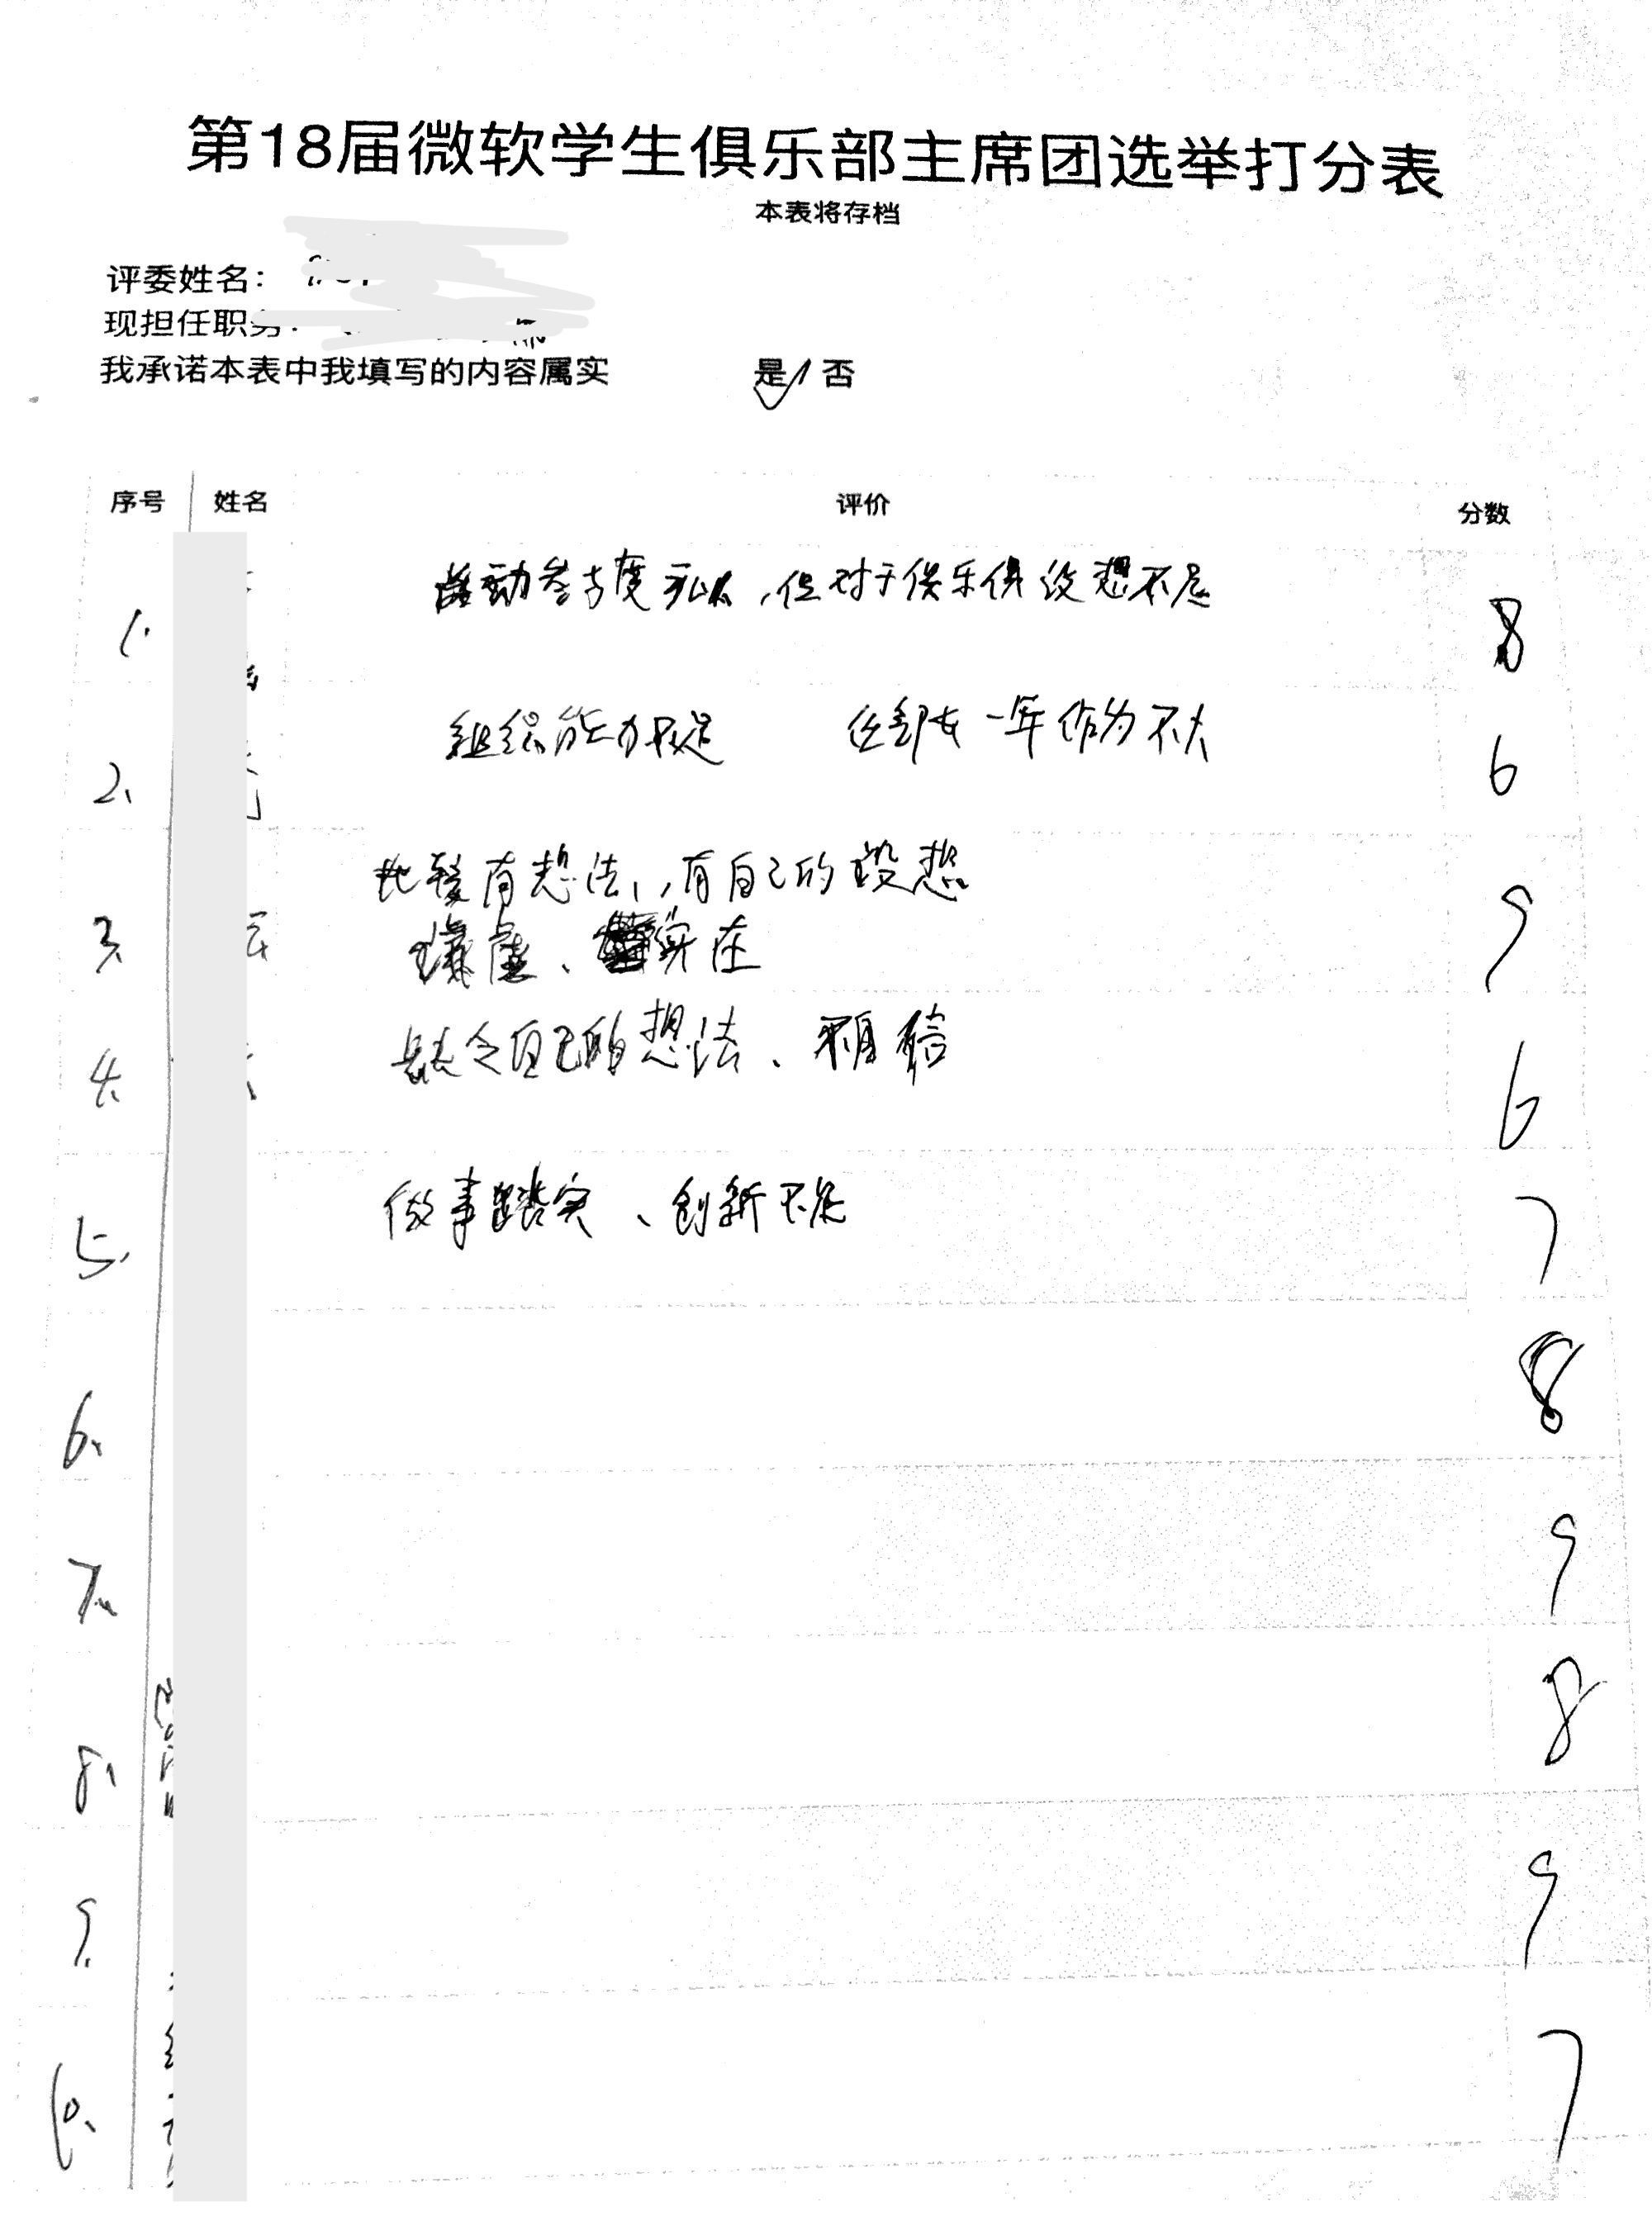 第18届微软学生俱乐部主席团选举打分表
本表将存档
评委姓名：
现担任职务：
我承诺本表中我填写的内容属实 是/否
序号 姓名 评价 分数
1. 活动参与度可以，但对于俱乐俱设想不足 8
2. 组织能力不足 任部长一年作为不大 6
3. 比较有想法，有自己的设想 9
谦虚、实在
4. 缺乏自己的想法、不自信 6
5. 做事踏实、创新不足 7
6. 8
7. 9
8. 8
9. 9
10. 7